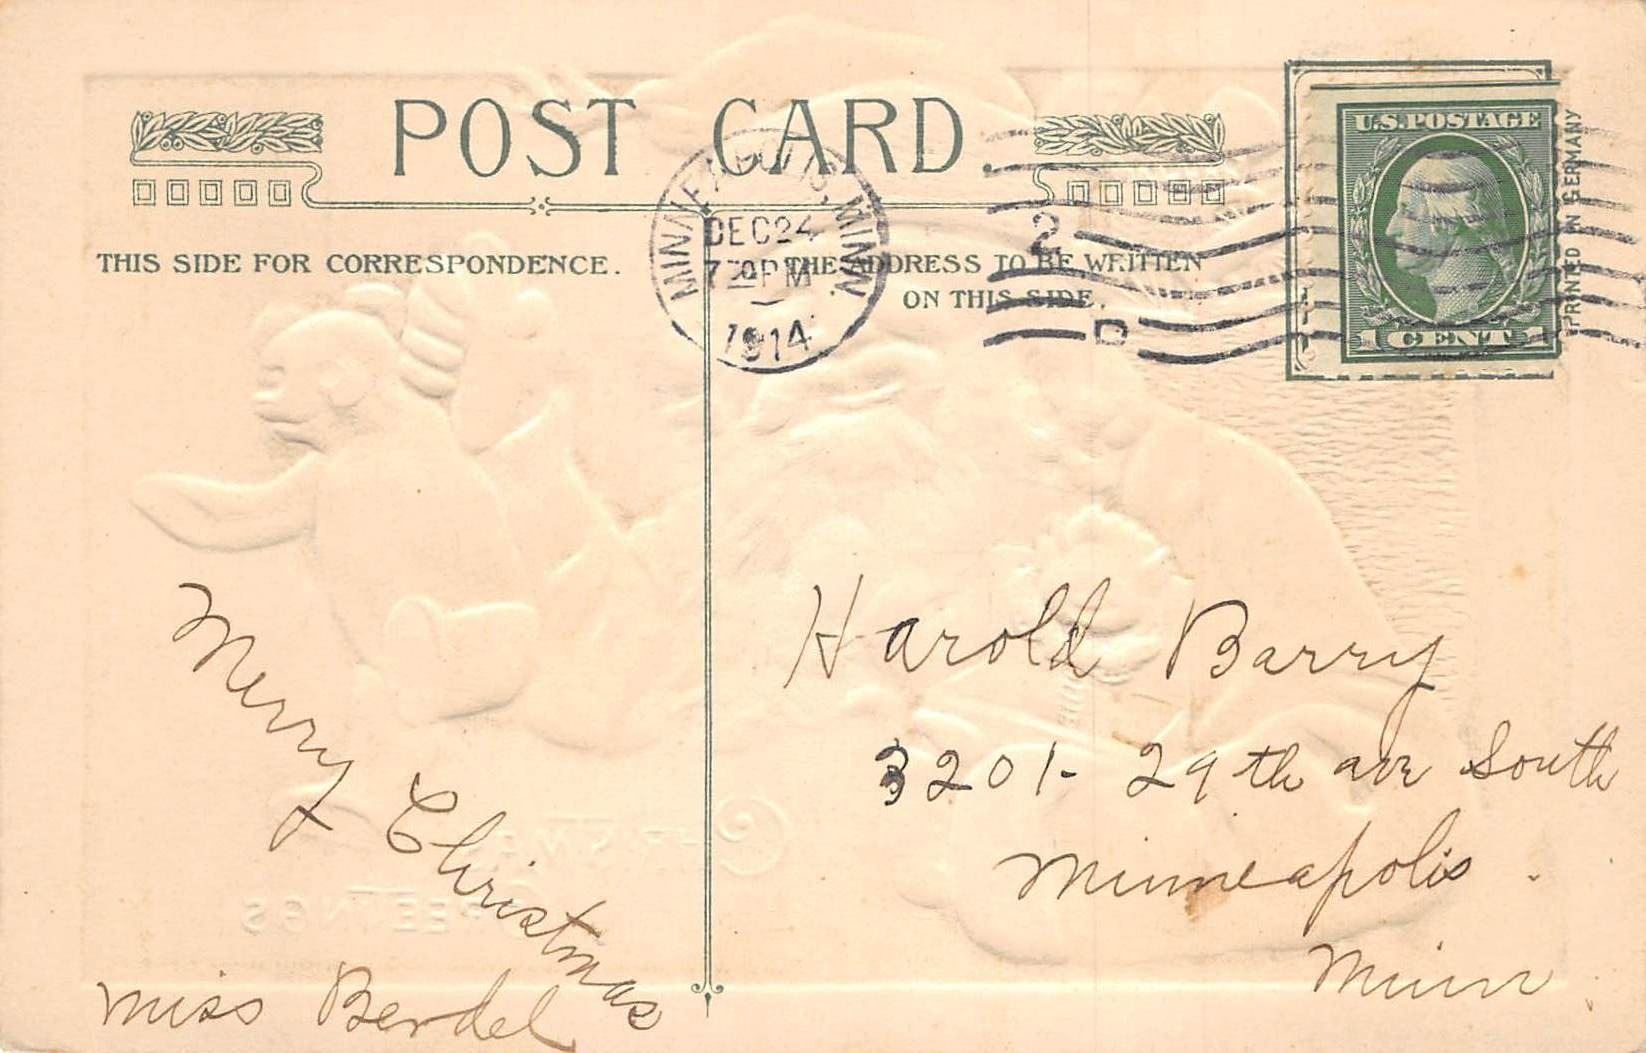 POST CARD
THIS SIDE FOR CORRESPONDENCE.
THE ADDRESS TO BE WRITTEN
ON THIS SIDE.
MINNEAPOLIS, MINN.
DEC 24
PM
1914
2
D
U.S. POSTAGE
1 CENT 1
PRINTED IN GERMANY
Merry Christmas
Miss Bendel
Harold Barry
3201 - 29th ave South
Minneapolis.
Minn.